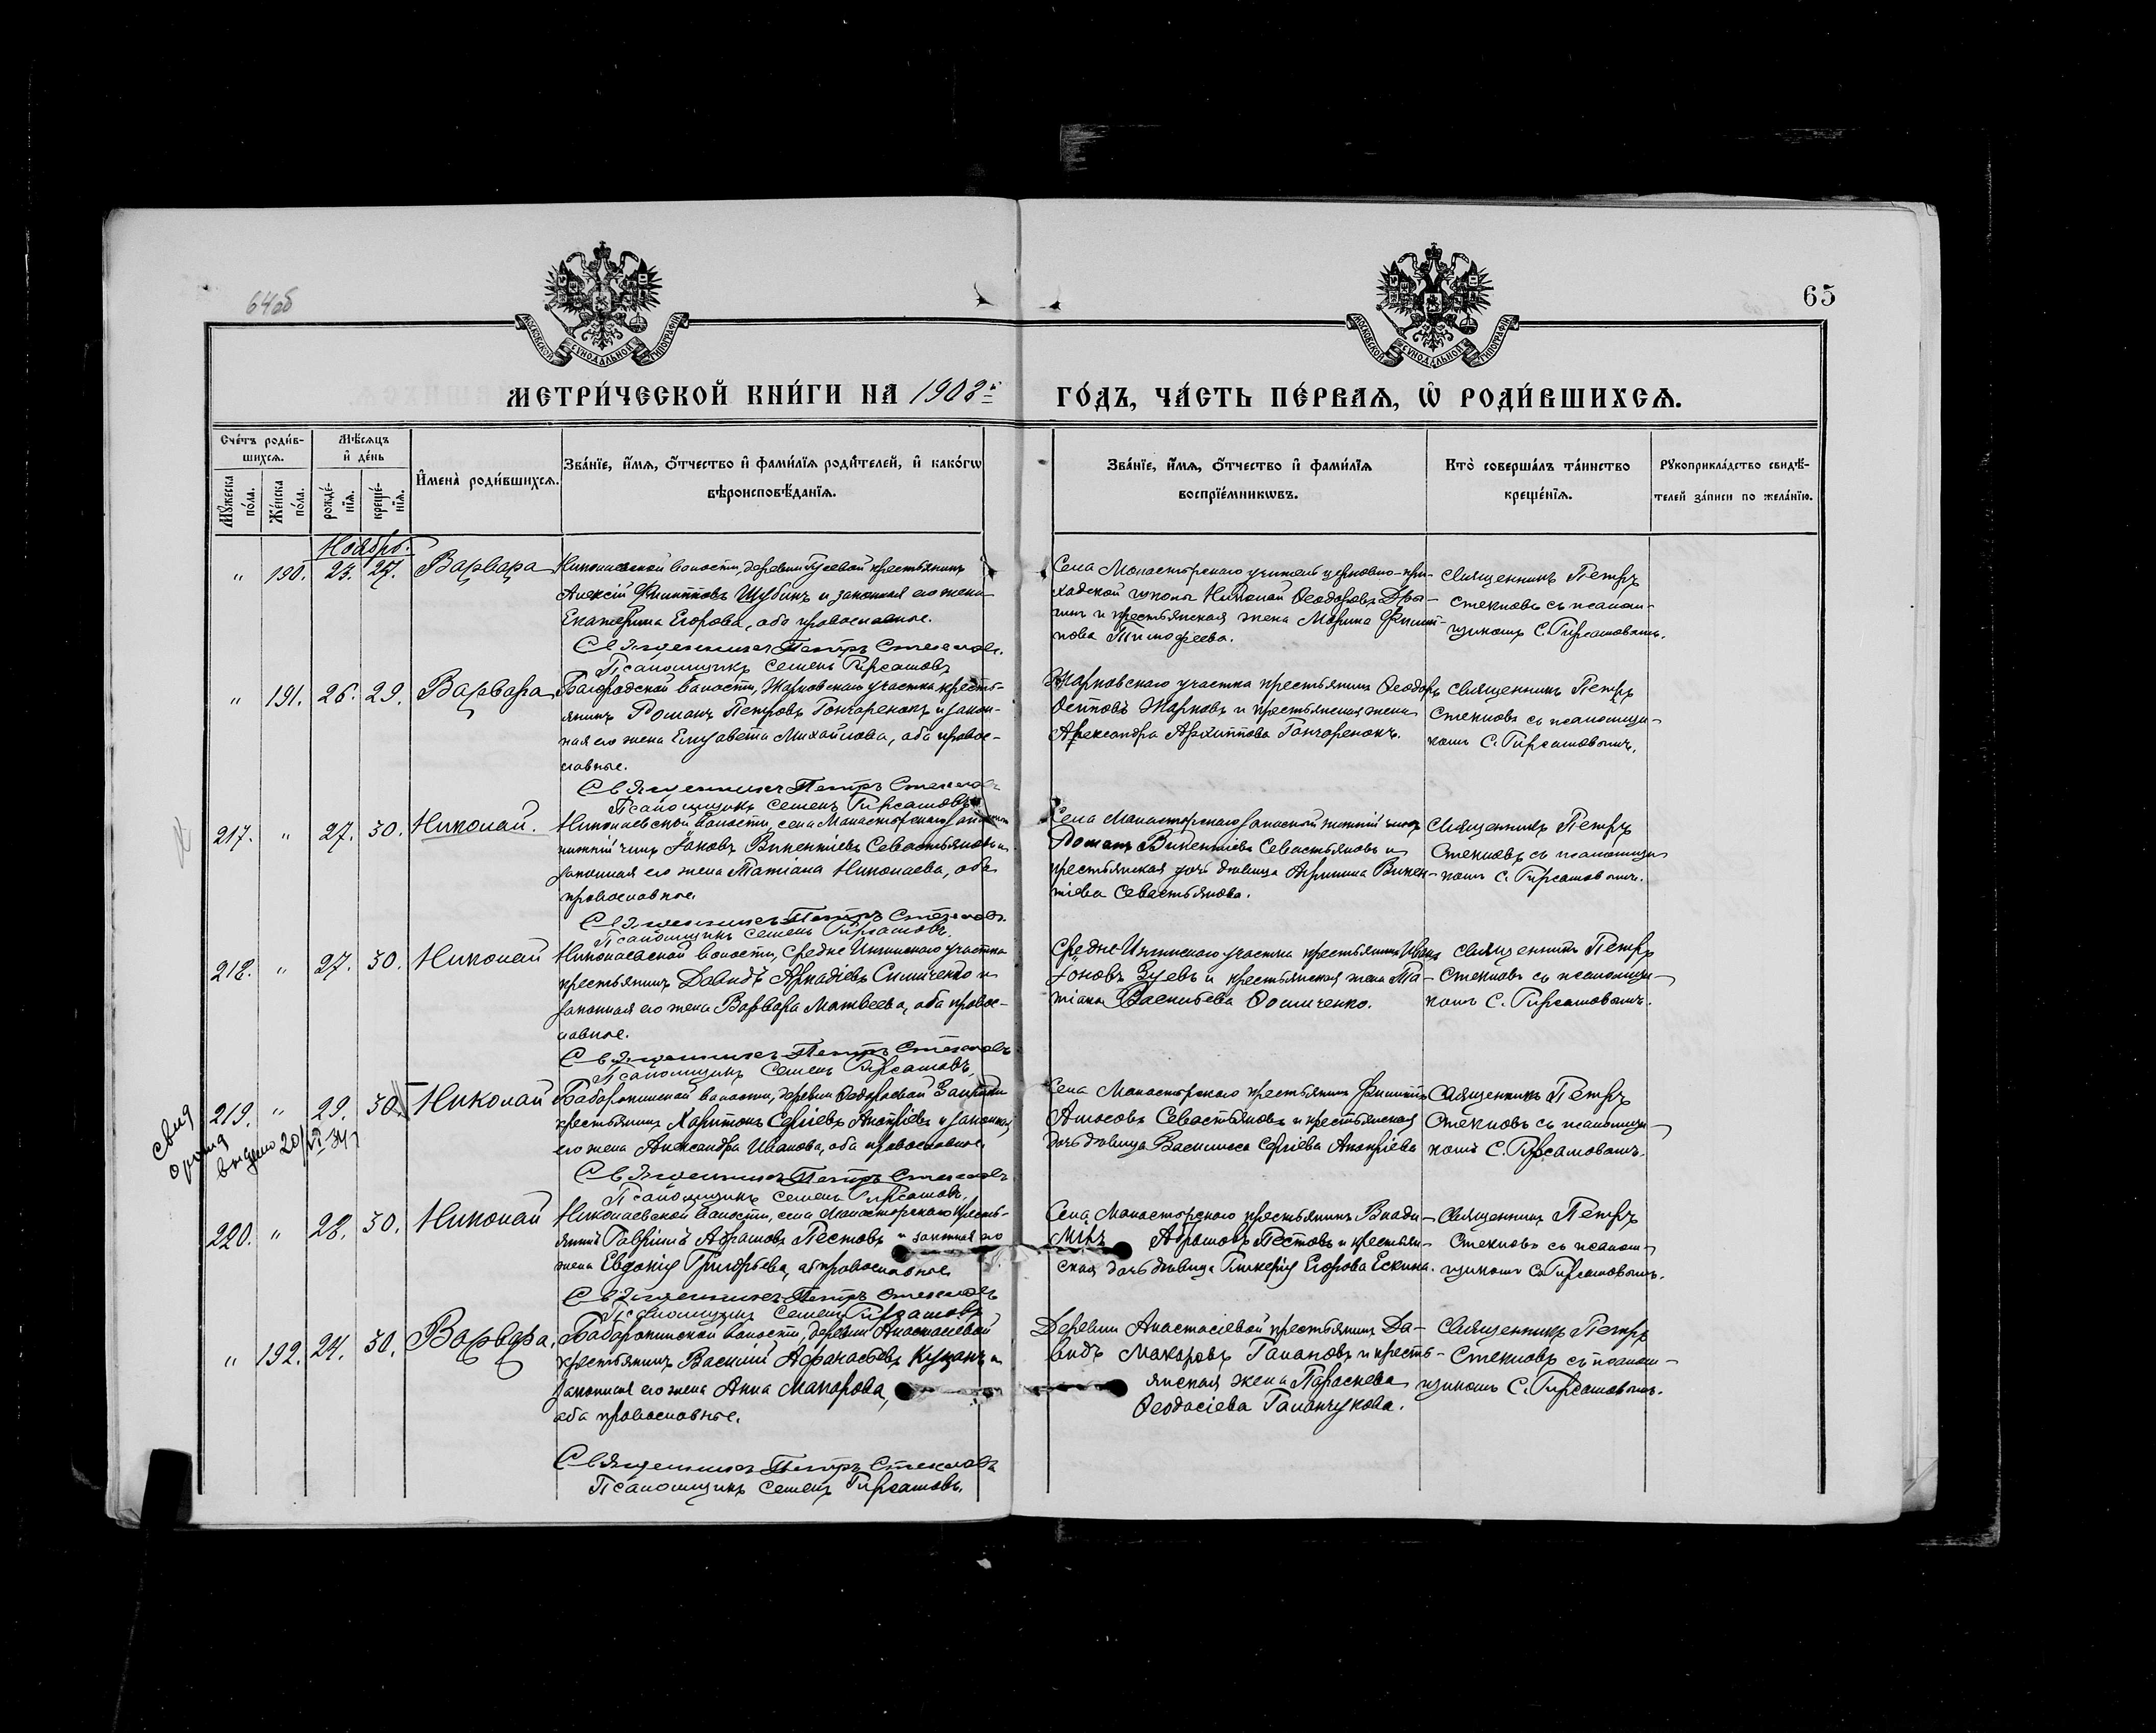 64об
65
МОСКОВСКОЙ СѴНОДАЛЬНОЙ ТИПОГРАФІИ
МОСКОВСКОЙ СѴНОДАЛЬНОЙ ТИПОГРАФІИ
МЕТРИ́ЧЕСКОЙ КНИ́ГИ НА 1908й ГО́ДЪ, ЧА́СТЬ ПЕ́РВАѦ, Ѿ РОДИ́ВШИХСѦ.
Сче́тъ роди́в-
шихсѧ.
Мѣ́сѧцъ
и҆ де́нь
Мꙋ́жеска
по́ла.
Же́нска
по́ла.
рожде́-
нїѧ.
креще́-
нїѧ.
И҆мена̀ роди́вшихсѧ.
Зва́нїе, и҆́мѧ, ѻ҆́тчество и҆ фами́лїѧ роди́телей, и҆ како́гѡ
вѣроисповѣ́данїѧ.
Зва́нїе, и҆́мѧ, ѻ҆́тчество и҆ фами́лїѧ
воспрїе́мникѡвъ.
Кто̀ соверша́лъ та́инство
креще́нїѧ.
Рꙋкоприкла́дство свидѣ́-
телей за́писи по жела́нїю.
Ноябрь.
" 190. 23. 27. Варвара
Николаевской волости, деревни Гусевой крестьянинъ
Алексій Филипповъ Шубинъ и законная его жена
Екатерина Егорова, оба православные.
Священникъ Петръ Стекловъ.
Псаломщикъ Семенъ Гирсамовъ
Села Монастырскаго учитель церковно-при-
ходской школы Николай Ѳеодоровъ
и крестьянская жена Марина Филип-
пова Тимофеева.
Священникъ Петръ
Стекловъ съ псалом-
щикомъ С. Гирсамовымъ.
" 191. 26. 29. Варвара
волости, Жарковскаго участка кресть-
янинъ Романъ Петровъ Гончаренокъ и закон-
ная его жена Елизавета Михайлова, оба правос-
лавные.
Священникъ Петръ Стекловъ
Псаломщикъ Семенъ Гирсамовъ
Жарковскаго участка крестьянинъ Ѳеодоръ
Осиповъ Жарковъ и крестьянская жена
Александра Архиппова Гончаренокъ.
Священникъ Петръ
Стекловъ съ псаломщи-
комъ С. Гирсамовымъ.
217. " 27. 30. Николай.
Николаевской волости, села Монастырскаго запасной
нижній чинъ Іаковъ Викентіевъ Севастьяновъ и
законная его жена Татіана Николаева, оба
православные.
Священникъ Петръ Стекловъ.
Псаломщикъ Семенъ Гирсамовъ.
Села Монастырскаго запасной нижній чинъ
Романъ Викентіевъ Севастьяновъ и
крестьянская дочь дѣвица Агрипина Викен-
тіева Севастьянова.
Священникъ Петръ
Стекловъ съ псаломщи-
комъ С. Гирсамовымъ.
218. " 27. 30. Николай
Николаевской волости, Средне участка
крестьянинъ Давидъ Аркадіевъ Симиченко и
законная его жена Варвара Матвеева, оба правос-
лавные.
Священникъ Петръ Стекловъ
Псаломщикъ Семенъ Гирсамовъ.
Средне участка крестьянинъ Иванъ
Іоновъ Зуевъ и крестьянская жена Та-
тіана Васильева
Священникъ Петръ
Стекловъ съ псаломщи-
комъ С. Гирсамовымъ.
выдано 20/VI 34 г
219. " 29. 30. Николай
волости, деревни Ѳедоровой
крестьянинъ Харитонъ Сергіевъ и законная
его жена Александра Иванова, оба православные
Священникъ Петръ Стекловъ
Псаломщикъ Семенъ Гирсамовъ.
Села Монастырскаго крестьянинъ Филиппъ
Амосовъ Севастьяновъ и крестьянская
дочь дѣвица Василисса Сергіева
Священникъ Петръ
Стекловъ съ псаломщи-
комъ С. Гирсамовымъ.
220. " 28. 30. Николай
Николаевской волости, села Монастырскаго кресть-
янинъ Гавріилъ Абрамовъ Пестовъ и законная его
жена Евдокія Григорьева, об. православные
Священникъ Петръ Стекловъ
Псаломщикъ Семенъ Гирсамовъ
Села Монастырскаго крестьянинъ Влади-
міръ Абрамовъ Пестовъ и крестьян-
ская дочь дѣвица Гликерія Егорова Ескина.
Священникъ Петръ
Стекловъ съ псалом-
щикомъ С. Гирсамовымъ.
" 192. 24. 30. Варвара.
волости, деревни Анастасіевой
крестьянинъ Василій Афанасьевъ и
законная его жена Анна Макарова,
оба православные.
Священникъ Петръ Стекловъ
Псаломщикъ Семенъ Гирсамовъ.
Деревни Анастасіевой крестьянинъ Да-
видъ Макаровъ Галановъ и кресть-
янская жена Параскева
Ѳеодосіева Галанчукова.
Священникъ Петръ
Стекловъ съ псалом-
щикомъ С. Гирсамовымъ.